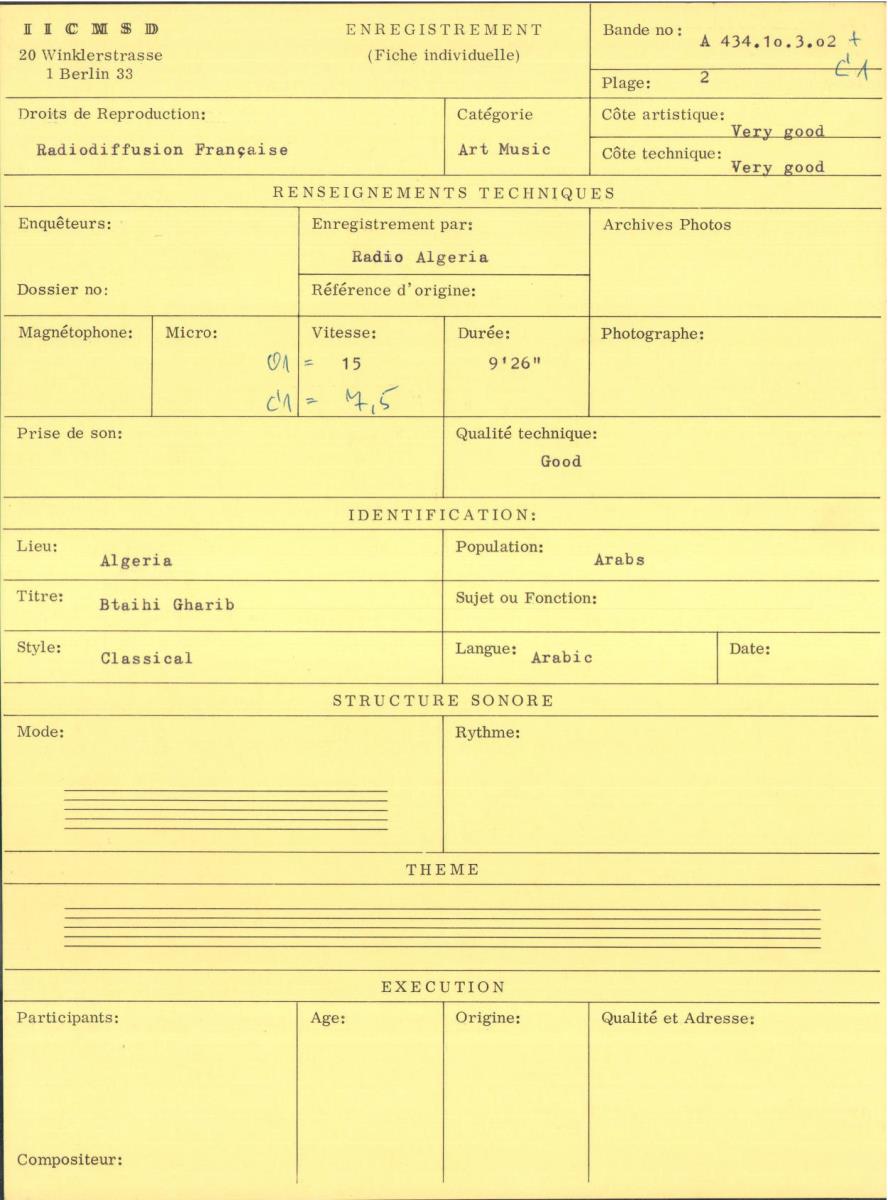 IICMSD
20 Winklerstrasse
1 Berlin 33
ENREGISTREMENT
(Fiche individuelle)
Bande no: A 434.1o.3.o2 +
C1
Plage: 2
Droits de Reproduction:
Radiodiffusion Française
Catégorie
Art Music
Côte artistique:
Very good
Côte technique:
Very good
RENSEIGNEMENTS TECHNIQUES
Enquêteurs:
Dossier no:
Enregistrement par:
Radio Algeria
Référence d'origine:
Archives Photos
Magnétophone:
Micro:
Vitesse:
O1 = 15
C1 = 7,5
Durée:
9'26"
Photographe:
Prise de son:
Qualité technique:
Good
IDENTIFICATION:
Lieu: Algeria
Population: Arabs
Titre: Btaihi Gharib
Sujet ou Fonction:
Style: Classical
Langue: Arabic
Date:
STRUCTURE SONORE
Mode:
Rythme:
THEME
EXECUTION
Participants:
Age:
Origine:
Qualité et Adresse:
Compositeur: